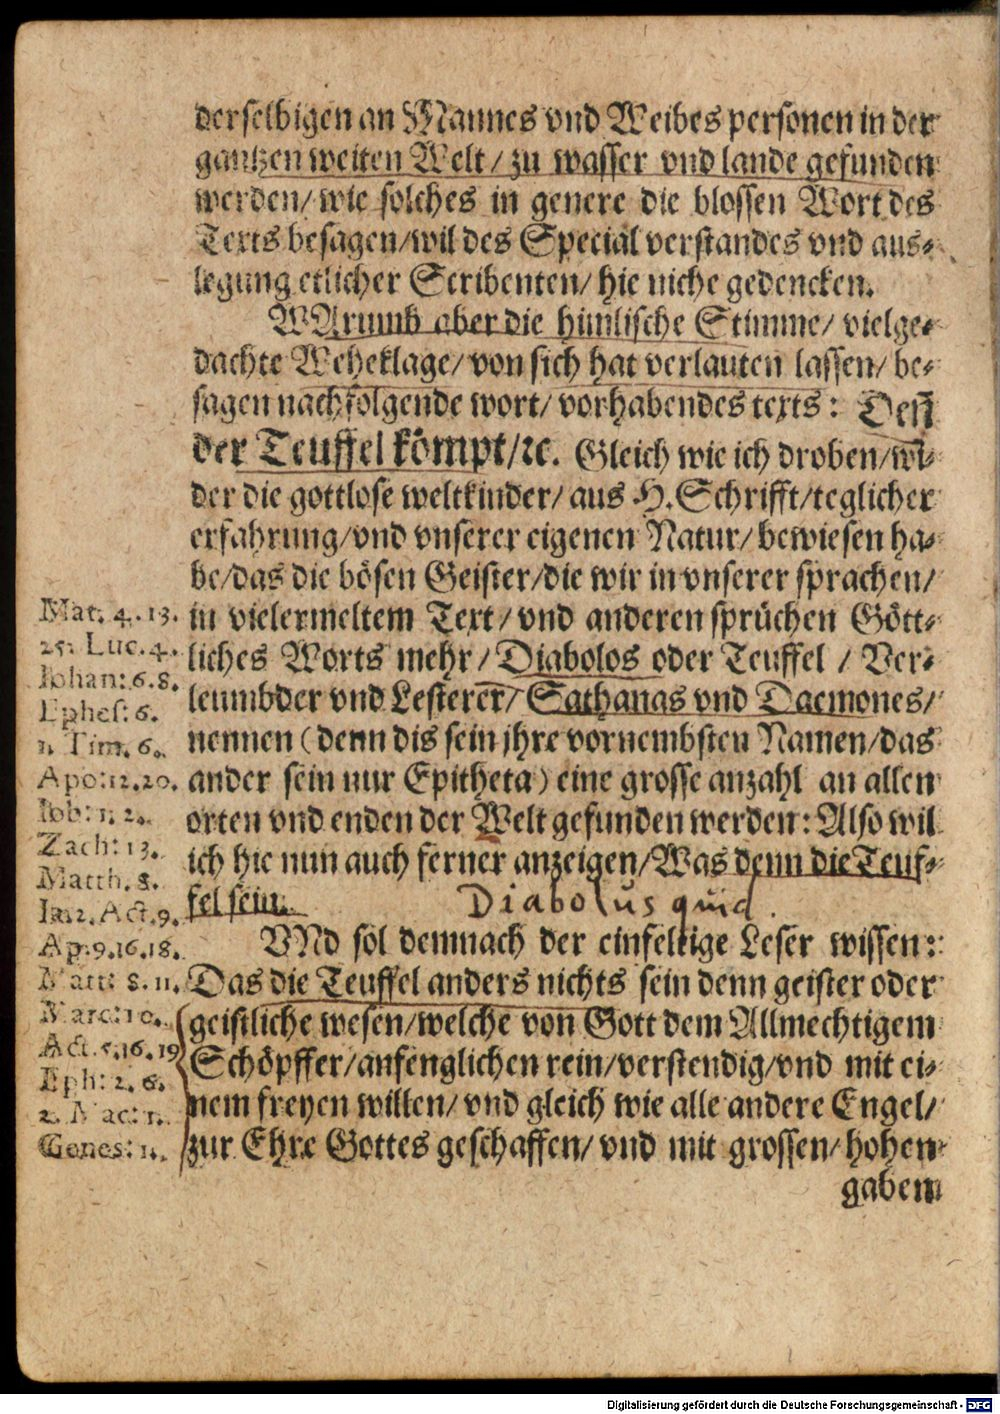 derselbigen an Mannes vnd Weibes personen in der
gantzen weiten Welt / zu wasser vnd lande gefunden
werden / wie solches in genere die blossen Wort des
Texts besagen / wil des Special verstandes vnd aus-
legung etlicher Scribenten / hie niche gedencken.
WArumb aber die himlische Stimme / vielge-
dachte Weheklage / von sich hat verlauten lassen / be-
sagen nachfolgende wort / vorhabendes texts: Deñ
der Teuffel kömpt / ꝛc. Gleich wie ich droben / wi-
der die gottlose weltkinder / aus H. Schrifft / teglicher
erfahrung / vnd vnserer eigenen Natur / bewiesen ha-
be / das die bösen Geister / die wir in vnserer sprachen /
in vielermeltem Text / vnd anderen sprüchen Gött-
liches Worts mehr / Diabolos oder Teuffel / Ver-
leumbder vnd Lesterer / Sathanas vnd Daemones /
nennen (denn dis sein jhre vornembsten Namen / das
ander sein nur Epitheta) eine grosse anzahl an allen
orten vnd enden der Welt gefunden werden: Also wil
ich hie nun auch ferner anzeigen / Was denn die Teuf-
fel sein.
Diabolus quid.
VNd sol demnach der einfeltige Leser wissen:
Das die Teuffel anders nichts sein denn geister oder
geistliche wesen / welche von Gott dem Allmechtigem
Schöpffer / anfenglichen rein / verstendig / vnd mit ei-
nem freyen willen / vnd gleich wie alle andere Engel /
zur Ehre Gottes geschaffen / vnd mit grossen / hohen
gaben
Mat. 4. 13.
25. Luc. 4.
Iohan: 6. 8.
Ephes: 6.
1. Tim. 6.
Apo: 12. 20.
Iob: 1. 2.
Zach: 13.
Matth. 8.
Ia: 2. Act. 9.
Ap: 9. 16. 18.
Matt: 8. 11.
Marc: 10.
Act. 5. 16. 19
Eph: 2. 6.
2. Mac: 1.
Genes: 1.
Digitalisierung gefördert durch die Deutsche Forschungsgemeinschaft - DFG